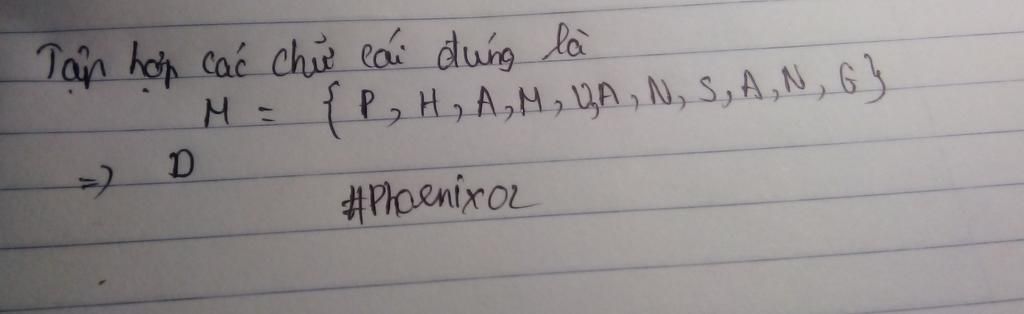 Tập hợp các chữ cái đúng là
M = { P, H, A, M, V, A, N, S, A, N, G }
=> D
#Phoenix02